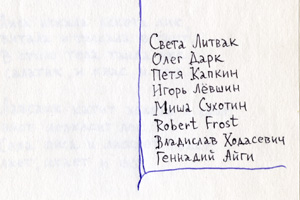 Света Литвак
Олег Дарк
Петя Капкин
Игорь Лёвшин
Миша Сухотин
Robert Frost
Владислав Ходасевич
Геннадий Айги